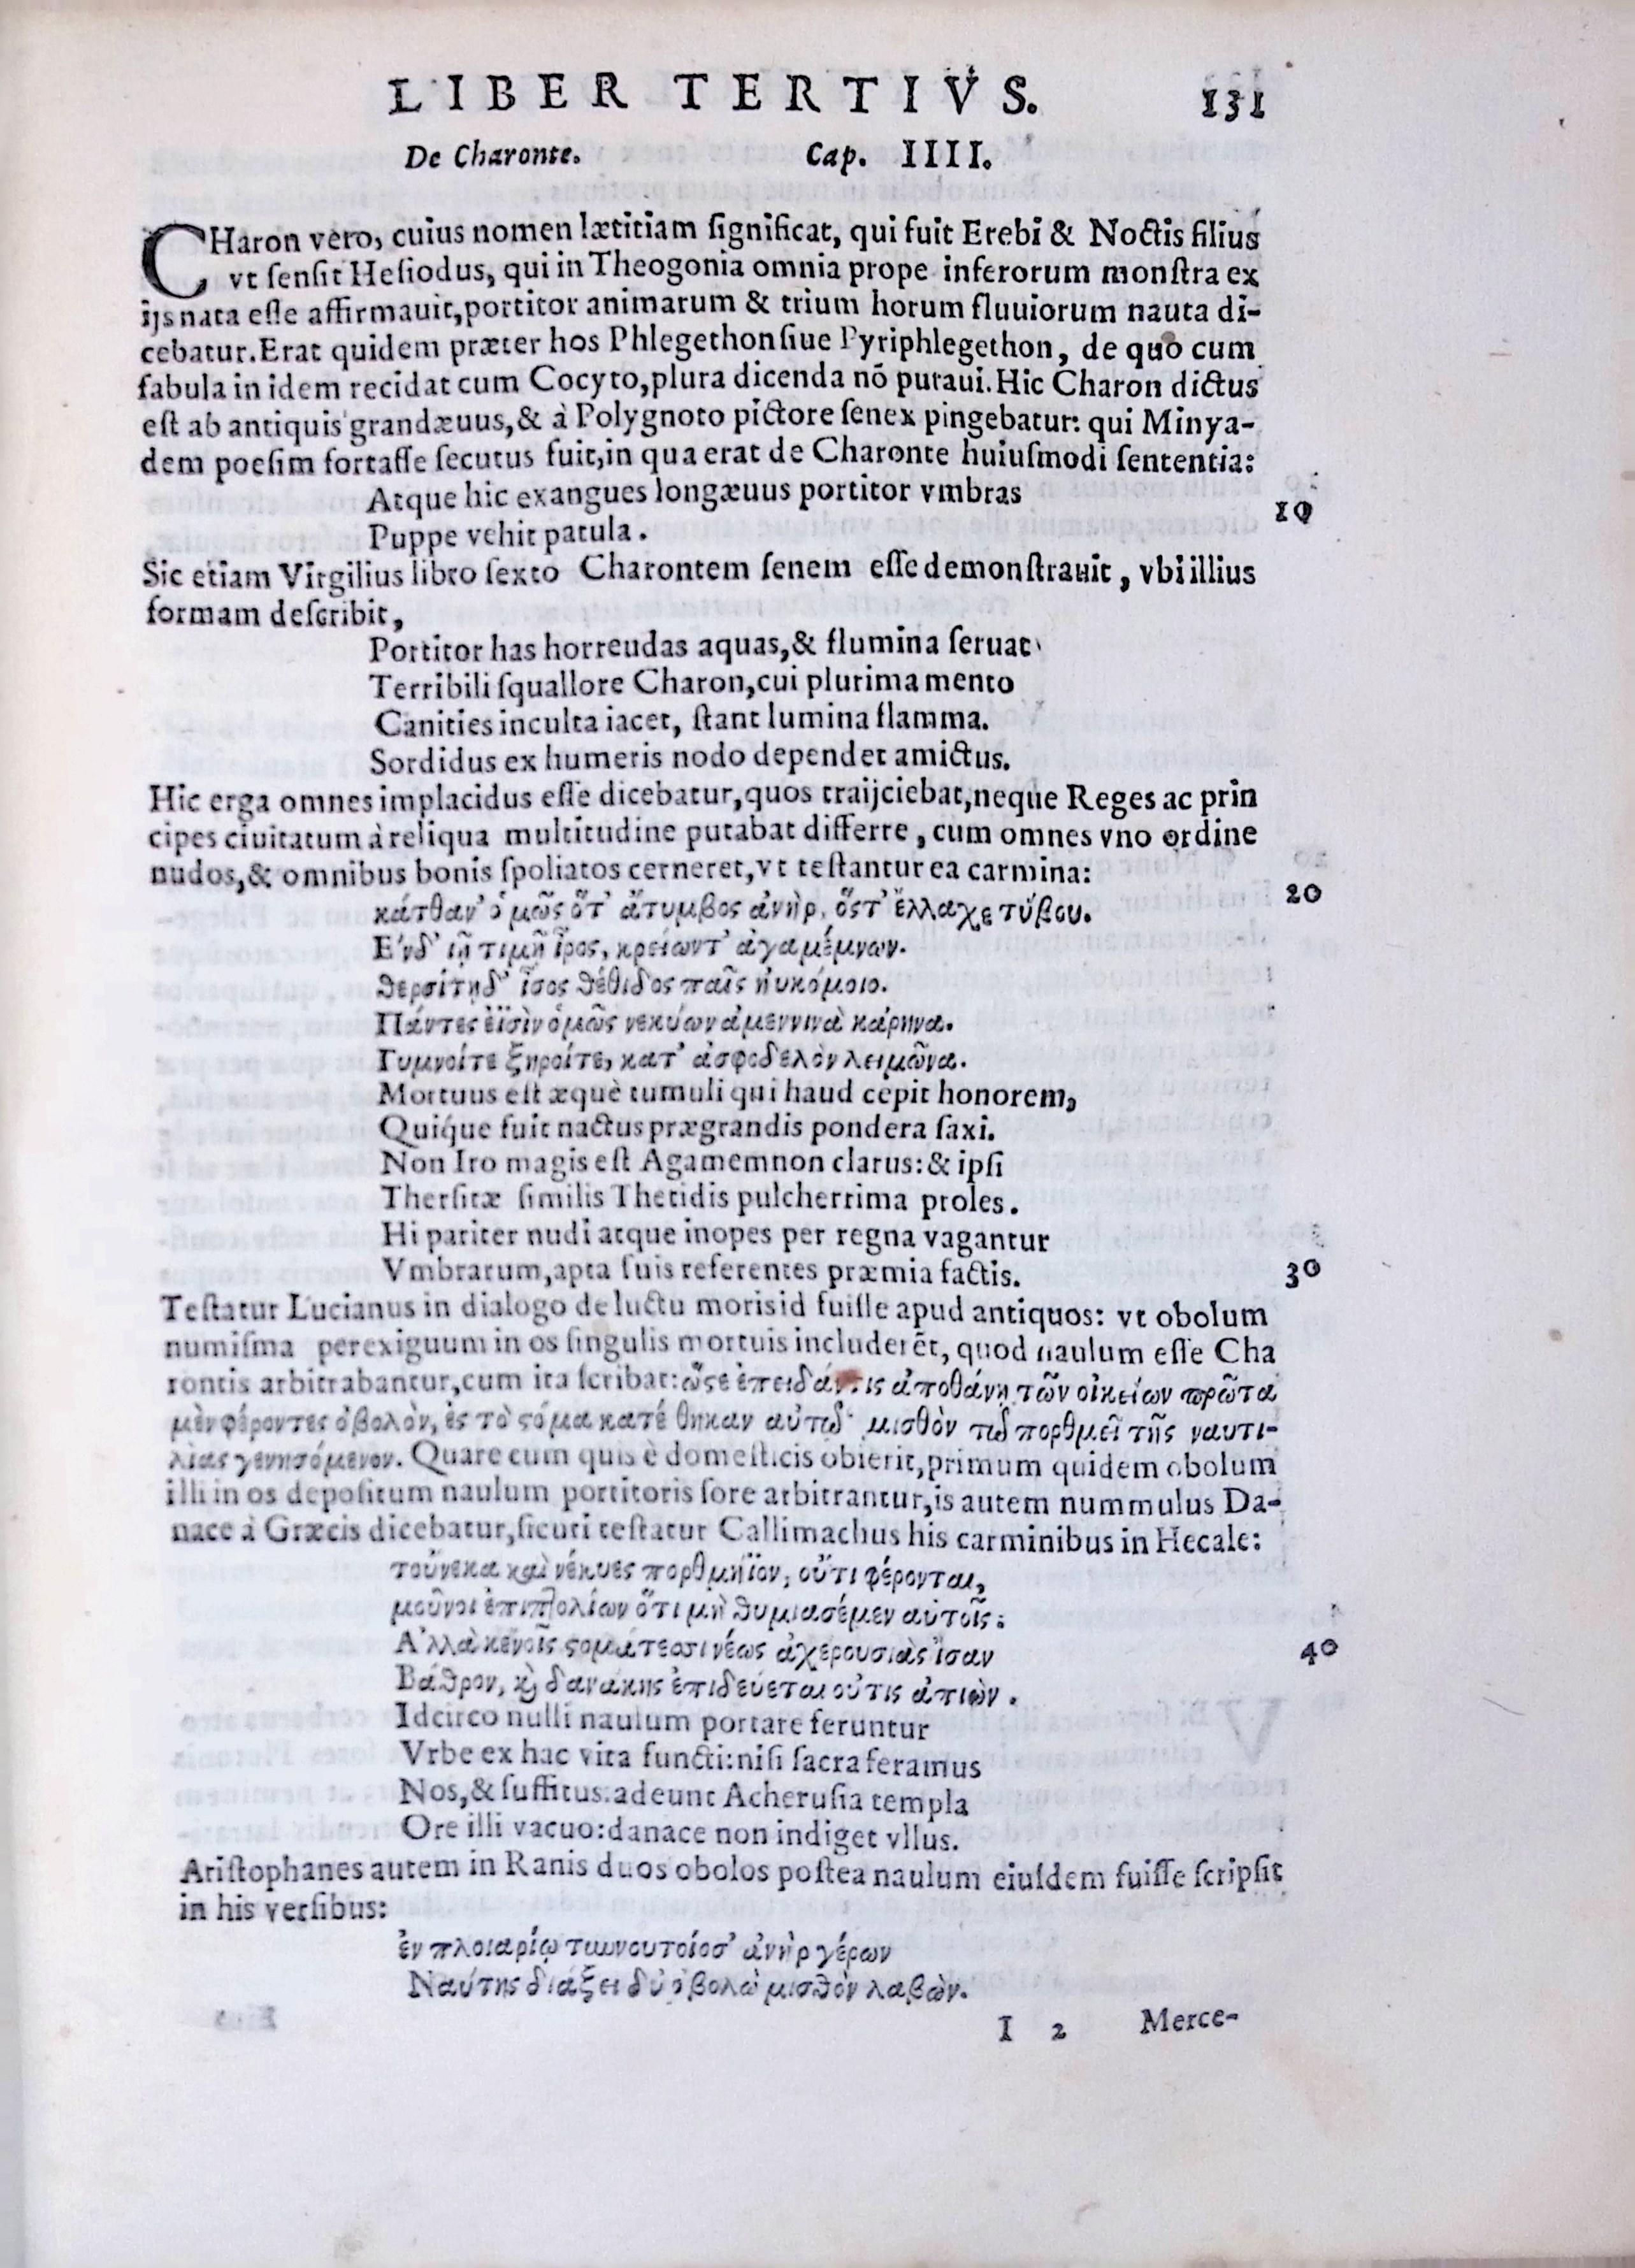 LIBER TERTIVS. 131
De Charonte. Cap. IIII.
CHaron vero, cuius nomen lætitiam ſignificat, qui fuit Erebi & Noctis filius
vt ſenſit Heſiodus, qui in Theogonia omnia prope inferorum monſtra ex
ijs nata eſſe affirmauit, portitor animarum & trium horum fluuiorum nauta di-
cebatur. Erat quidem præter hos Phlegethon ſiue Pyriphlegethon, de quo cum
fabula in idem recidat cum Cocyto, plura dicenda nō putaui. Hic Charon dictus
eſt ab antiquis grandæuus, & à Polygnoto pictore ſenex pingebatur: qui Minya-
dem poeſim fortaſſe ſecutus fuit, in qua erat de Charonte huiuſmodi ſententia:
Atque hic exangues longæuus portitor vmbras
10
Puppe vehit patula.
Sic etiam Virgilius libro ſexto Charontem ſenem eſſe demonſtrauit, vbi illius
formam deſcribit,
Portitor has horreudas aquas, & flumina ſeruat
Terribili ſquallore Charon, cui plurima mento
Canities inculta iacet, ſtant lumina flamma.
Sordidus ex humeris nodo dependet amictus.
Hic erga omnes implacidus eſſe dicebatur, quos traijciebat, neque Reges ac prin
cipes ciuitatum à reliqua multitudine putabat differre, cum omnes vno ordine
nudos, & omnibus bonis ſpoliatos cerneret, vt teſtantur ea carmina:
κάτθαν' ὁμῶς ὅτ' ἄτυμβος ἀνὴρ, ὅστ' ἔλλαχε τύβου. 20
Ε'νδ' ἰῇ τιμῇ ἶρος, κρείωντ' ἀγαμέμνων.
Θερσίτηδ' ἶσος Θέθιδος παῖς ἠυκόμοιο.
Πάντες ἐϊσὶν ὁμῶς νεκύων ἀμεννινὰ κάρηνα.
Γυμνοίτε ξηροίτε, κατ' ἀσφοδελὸν λειμῶνα.
Mortuus eſt æquè tumuli qui haud cepit honorem,
Quíque fuit nactus prægrandis pondera ſaxi.
Non Iro magis eſt Agamemnon clarus: & ipſi
Therſitæ ſimilis Thetidis pulcherrima proles.
Hi pariter nudi atque inopes per regna vagantur
Vmbrarum, apta ſuis referentes præmia factis. 30
Teſtatur Lucianus in dialogo de luctu moris id fuiſſe apud antiquos: vt obolum
numiſma perexiguum in os ſingulis mortuis includerēt, quod naulum eſſe Cha
rontis arbitrabantur, cum ita ſcribat: ὥϛε ἐπειδάν τις ἀποθάνῃ τῶν οἰκείων πρῶτα
μὲν φέροντες ὀβολὸν, ἐς τὸ ϛόμα κατέθηκαν αὐτῷ μισθὸν τῷ πορθμεῖ τῆς ναυτι-
λίας γενησόμενον. Quare cum quis è domeſticis obierit, primum quidem obolum
illi in os depoſitum naulum portitoris fore arbitrantur, is autem nummulus Da-
nace à Græcis dicebatur, ſicuti teſtatur Callimachus his carminibus in Hecale:
τοὔνεκα καὶ νέκυες πορθμήϊον, οὔτι φέρονται,
μοῦνοι ἐπιπτολίων ὅτι μὴ θυμιασέμεν αὐτοῖς:
Α'λλὰ κενοῖς ϛομάτεσσι νέως ἀχερουσιὰς ἴσαν 40
Βάθρον, καὶ δανάκης ἐπιδεύεται οὔτις ἀπιών.
Idcirco nulli naulum portare feruntur
Vrbe ex hac vita functi: niſi ſacra feramus
Nos, & ſuffitus: adeunt Acheruſia templa
Ore illi vacuo: danace non indiget vllus.
Ariſtophanes autem in Ranis duos obolos poſtea naulum eiuſdem fuiſſe ſcripſit
in his verſibus:
ἐν πλοιαρίῳ τυννουτοίοσ' ἀνὴρ γέρων
Ναύτης διάξει δύ ὀβολὼ μισθὸν λαβὼν.
I 2 Merce-